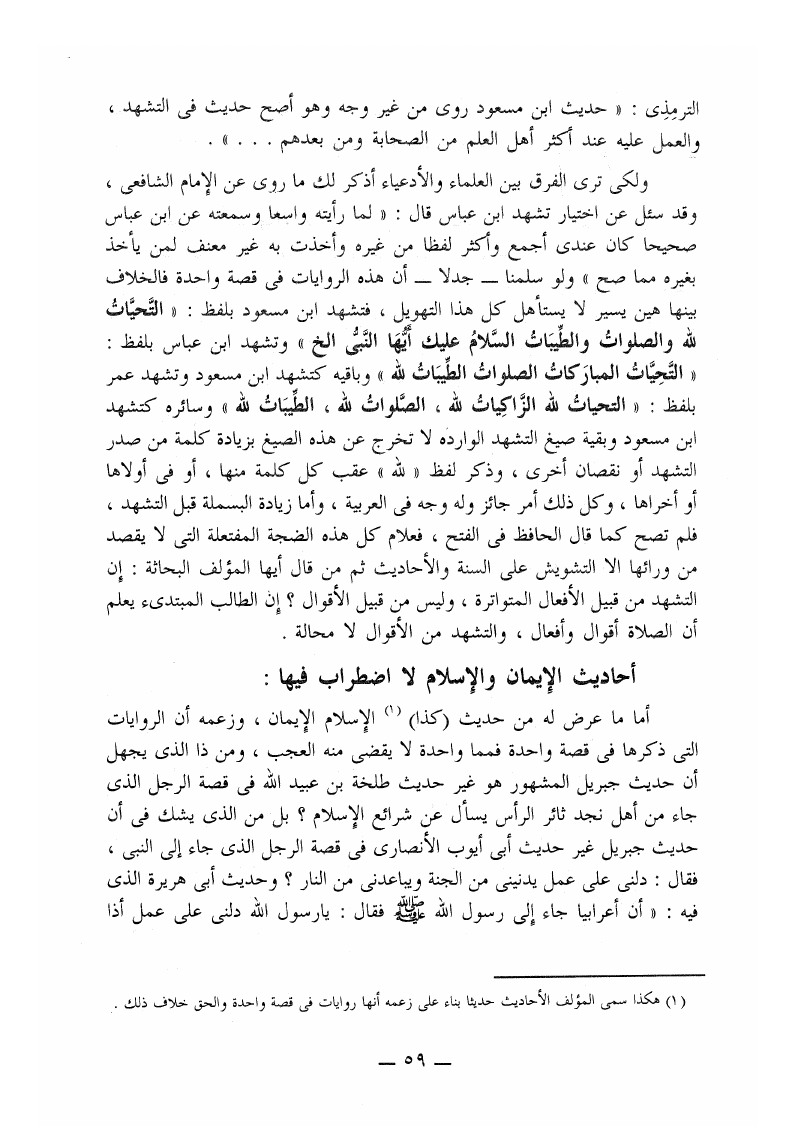 الترمِذِى : « حديث ابن مسعود روى من غير وجه وهو أصح حديث فى التشهد ،
والعمل عليه عند أكثر أهل العلم من الصحابة ومن بعدهم . . . » .
ولكى ترى الفرق بين العلماء والأدعياء أذكر لك ما روى عن الإمام الشافعى ،
وقد سئل عن اختيار تشهد ابن عباس قال : « لما رأيته واسعا وسمعته عن ابن عباس
صحيحا كان عندى أجمع وأكثر لفظا من غيره وأخذت به غير معنف لمن يأخذ
بغيره مما صح » ولو سلمنا — جدلا — أن هذه الروايات فى قصة واحدة فالخلاف
بينها هين يسير لا يستأهل كل هذا التهويل ، فتشهد ابن مسعود بلفظ : « التَّحيَّاتُ
لله والصلواتُ والطِّيبَاتُ السَّلامُ عليك أَيُّهَا النَّبىُّ الخ » وتشهد ابن عباس بلفظ :
« التَّحيَّاتُ المبارَكاتُ الصلواتُ الطيِّبَاتُ لله » وباقيه كتشهد ابن مسعود وتشهد عمر
بلفظ : « التحياتُ لله الزَّاكِياتُ لله ، الصَّلواتُ لله ، الطيِّبَاتُ لله » وسائره كتشهد
ابن مسعود وبقية صيغ التشهد الوارده لا تخرج عن هذه الصيغ بزيادة كلمة من صدر
التشهد أو نقصان أخرى ، وذكر لفظ « لله » عقب كل كلمة منها ، أو فى أولاها
أو أخراها ، وكل ذلك أمر جائز وله وجه فى العربية ، وأما زيادة البسملة قبل التشهد ،
فلم تصح كما قال الحافظ فى الفتح ، فعلام كل هذه الضجة المفتعلة التى لا يقصد
من ورائها الا التشويش على السنة والأحاديث ثم من قال أيها المؤلف البحاثة : إن
التشهد من قبيل الأفعال المتواترة ، وليس من قبيل الأقوال ؟ إن الطالب المبتدىء يعلم
أن الصلاة أقوال وأفعال ، والتشهد من الأقوال لا محالة .
أحاديث الإيمان والإسلام لا اضطراب فيها :
أما ما عرض له من حديث (كذا) (١) الإسلام الإيمان ، وزعمه أن الروايات
التى ذكرها فى قصة واحدة فمما واحدة لا يقضى منه العجب ، ومن ذا الذى يجهل
أن حديث جبريل المشهور هو غير حديث طلحة بن عبيد الله فى قصة الرجل الذى
جاء من أهل نجد ثائر الرأس يسأل عن شرائع الإسلام ؟ بل من الذى يشك فى أن
حديث جبريل غير حديث أبى أيوب الأنصارى فى قصة الرجل الذى جاء إلى النبى ،
فقال : دلنى على عمل يدنينى من الجنة ويباعدنى من النار ؟ وحديث أبى هريرة الذى
فيه : « أن أعرابيا جاء إلى رسول الله ﷺ فقال : يارسول الله دلنى على عمل أذا
(١) هكذا سمى المؤلف الأحاديث حديثا بناء على زعمه أنها روايات فى قصة واحدة والحق خلاف ذلك .
— ٥٩ —